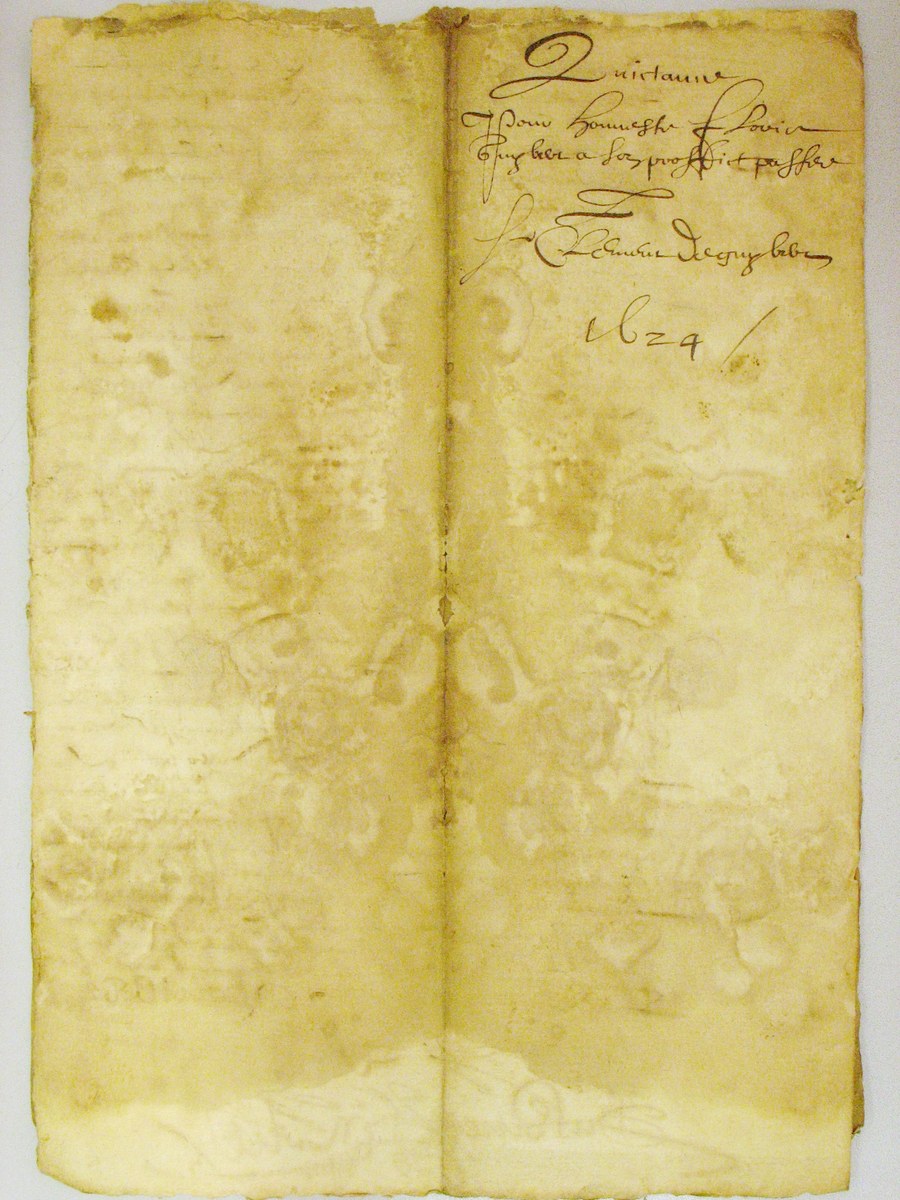 Quictance
Pour honneste Loris
Guybert a son proffict passee
Sr Clement Deguybert
1624 /